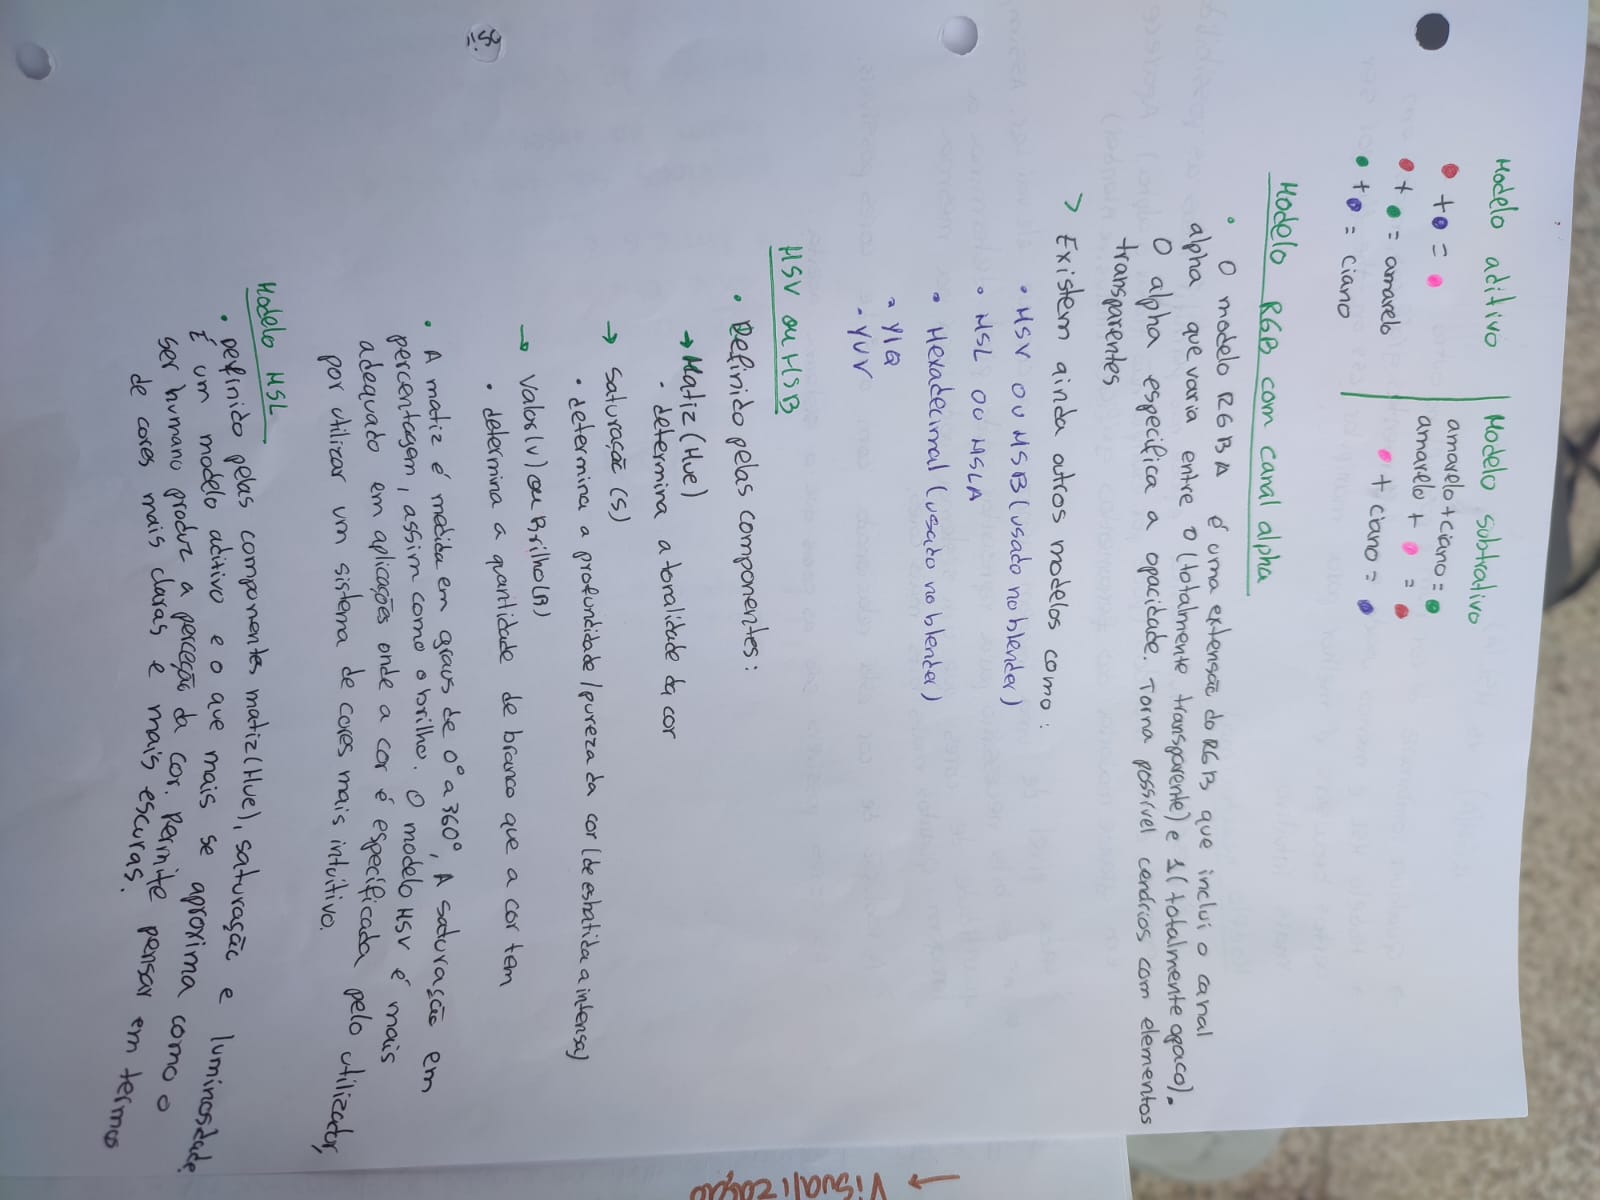 Modelo aditivo | Modelo subtrativo
+ = 
+ = amarelo
+ = ciano
amarelo + ciano =
amarelo + =
+ ciano =
Modelo RGB com canal alpha
• O modelo RGBA é uma extensão do RGB que inclui o canal
alpha que varia entre 0 (totalmente transparente) e 1 (totalmente opaco).
O alpha especifica a opacidade. Torna possível cenários com elementos
transparentes
> Existem ainda outros modelos como:
• HSV OU HSB (usado no blender)
• HSL OU HSLA
• Hexadecimal (usado no blender)
• YIQ
• YUV
HSV ou HSB
• Definido pelas componentes:
→ Matiz (Hue)
• determina a tonalidade da cor
→ Saturação (S)
• determina a profundidade/pureza da cor (de esbatida a intensa)
→ Valor (V) ou Brilho (B)
• determina a quantidade de branco que a cor tem
• A matiz é medida em graus de 0° a 360°, A saturação em
percentagem, assim como o brilho. O modelo HSV é mais
adequado em aplicações onde a cor é especificada pelo utilizador,
por utilizar um sistema de cores mais intuitivo.
Modelo HSL
• Definido pelas componentes matiz (Hue), saturação e luminosidade.
É um modelo aditivo e o que mais se aproxima como o
ser humano produz a perceção da cor. Permite pensar em termos
de cores mais claras e mais escuras.
← Visualização